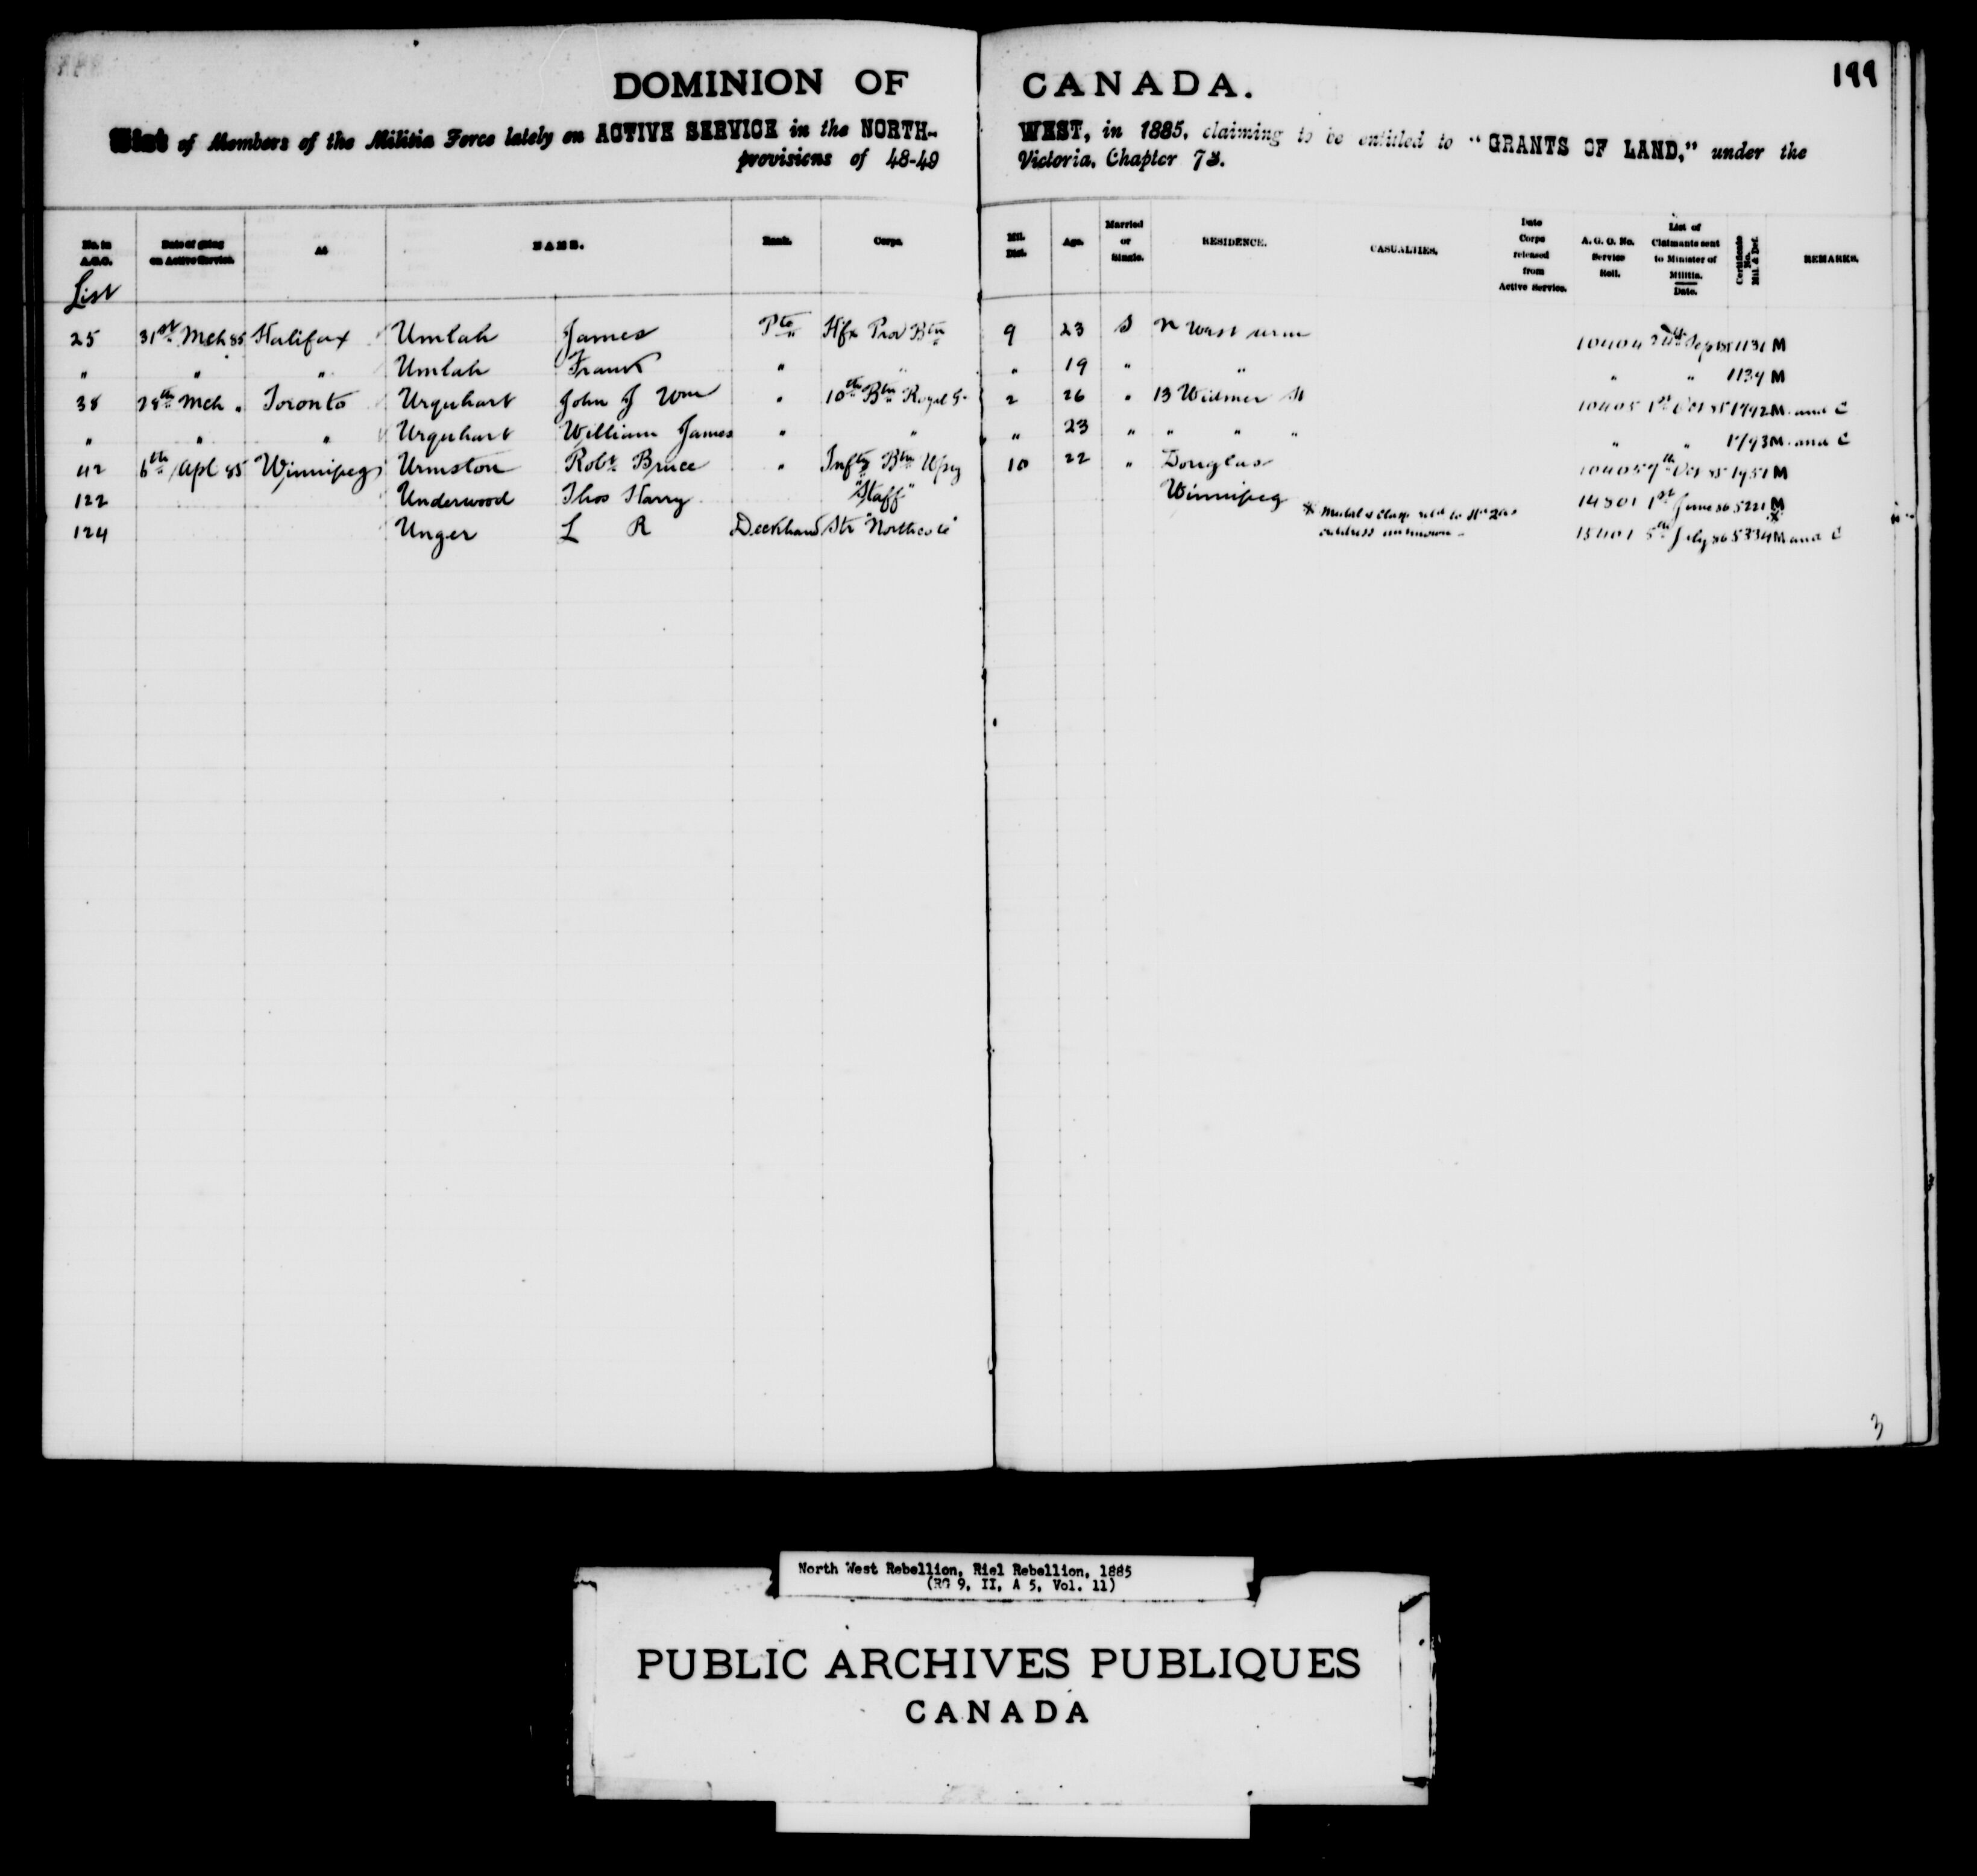 199
DOMINION OF CANADA.
List of Members of the Militia Force lately on ACTIVE SERVICE in the NORTH-WEST, in 1885, claiming to be entitled to "GRANTS OF LAND," under the
provisions of 48-49 Victoria, Chapter 73.
No. in A.G.O. List | Date of going on Active Service. | At | NAME. | Rank. | Corps. | Mil. Dist. | Age. | Married or Single. | RESIDENCE. | CASUALTIES. | Date Corps released from Active Service. | A. G. O. No. Service Roll. | List of Claimants sent to Minister of Militia. Date. | Certificate No. Mil & Def. | REMARKS.
25 31st Mch 85 Halifax Umlah James Pte Hfx Prov Btn 9 23 S N West 10404 Sep 1131 M
" " " Umlah Frank " " " 19 " " " " 1134 M
38 28th Mch " Toronto Urquhart John J Wm " 10th Btn Royal G. 2 26 " 13 Widmer St 10405 1st Oct 85 M and C
" " " Urquhart William James " " " 23 " " " " " " M and C
42 6th Apl 85 Winnipeg Urmston Robt Bruce " Infty Btn Wpg 10 22 " Douglas 10405 Oct 85 1951 M
122 Underwood Thos Harry "Staff" Winnipeg 14801 1st June 86 5221 M
124 Unger L R Deckhand Str "Northcote" * Medal & Clasp to address unknown 15401 5th July 86 5334 M and C
3
North West Rebellion, Riel Rebellion, 1885
(RG 9, II, A 5, Vol. 11)
PUBLIC ARCHIVES PUBLIQUES
CANADA